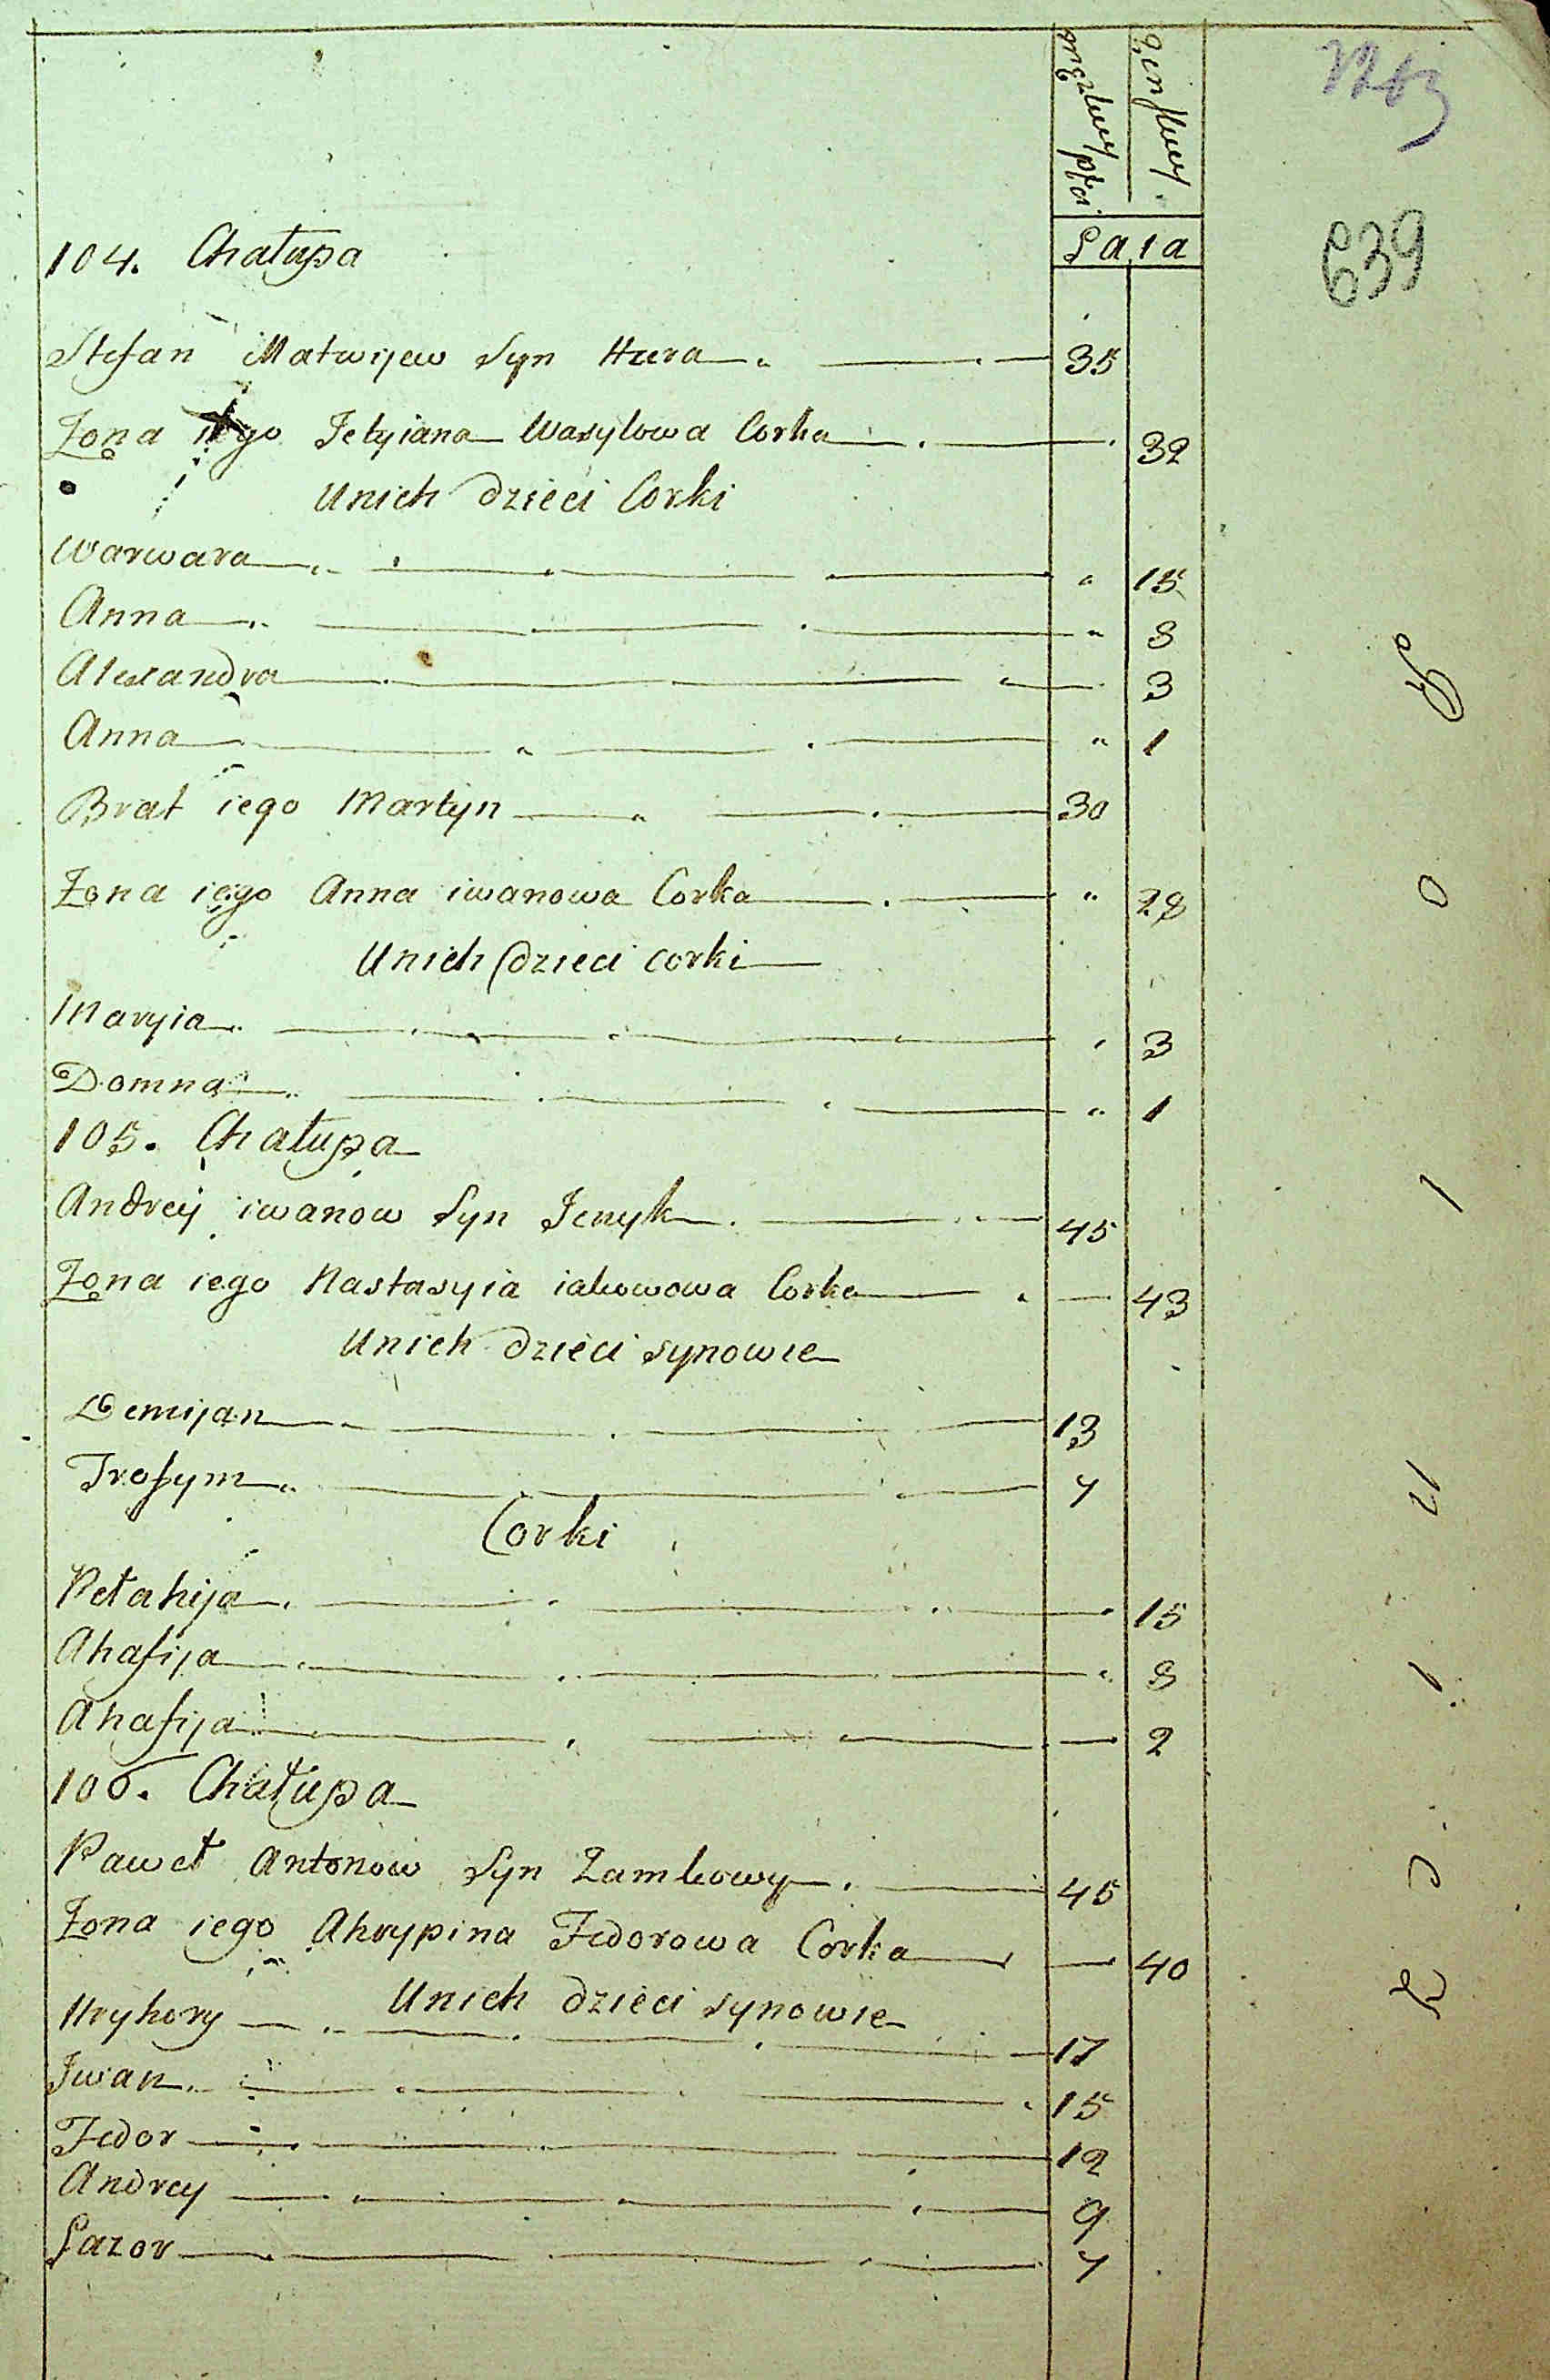 męzkey płci
żenskey
Lata
639
104. Chałupa
Stefan Matwijew Syn Hura 35
Żona iego Tetyiana Wasylowa Corka 32
Unich dzieci Corki
Warwara 15
Anna 8
Alexandra 3
Anna 1
Brat iego Martyn 30
Żona iego Anna iwanowa Corka 28
Unich dzieci corki
Maryia 3
Domna 1
105. Chałupa
Andrey iwanow Syn 45
Żona iego Nastasyia iakowowa Corka 43
Unich dzieci synowie
Demijan 13
Trofym 7
Corki
Pełahija 15
Ahafija 8
Ahafija 2
106. Chałupa
Paweł Antonow Syn Zamkowy 45
Żona iego Ahrypina Fedorowa Corka 40
Unich dzieci synowie
Hryhory 17
Iwan 15
Fedor 12
Andrey 9
Łazor 7